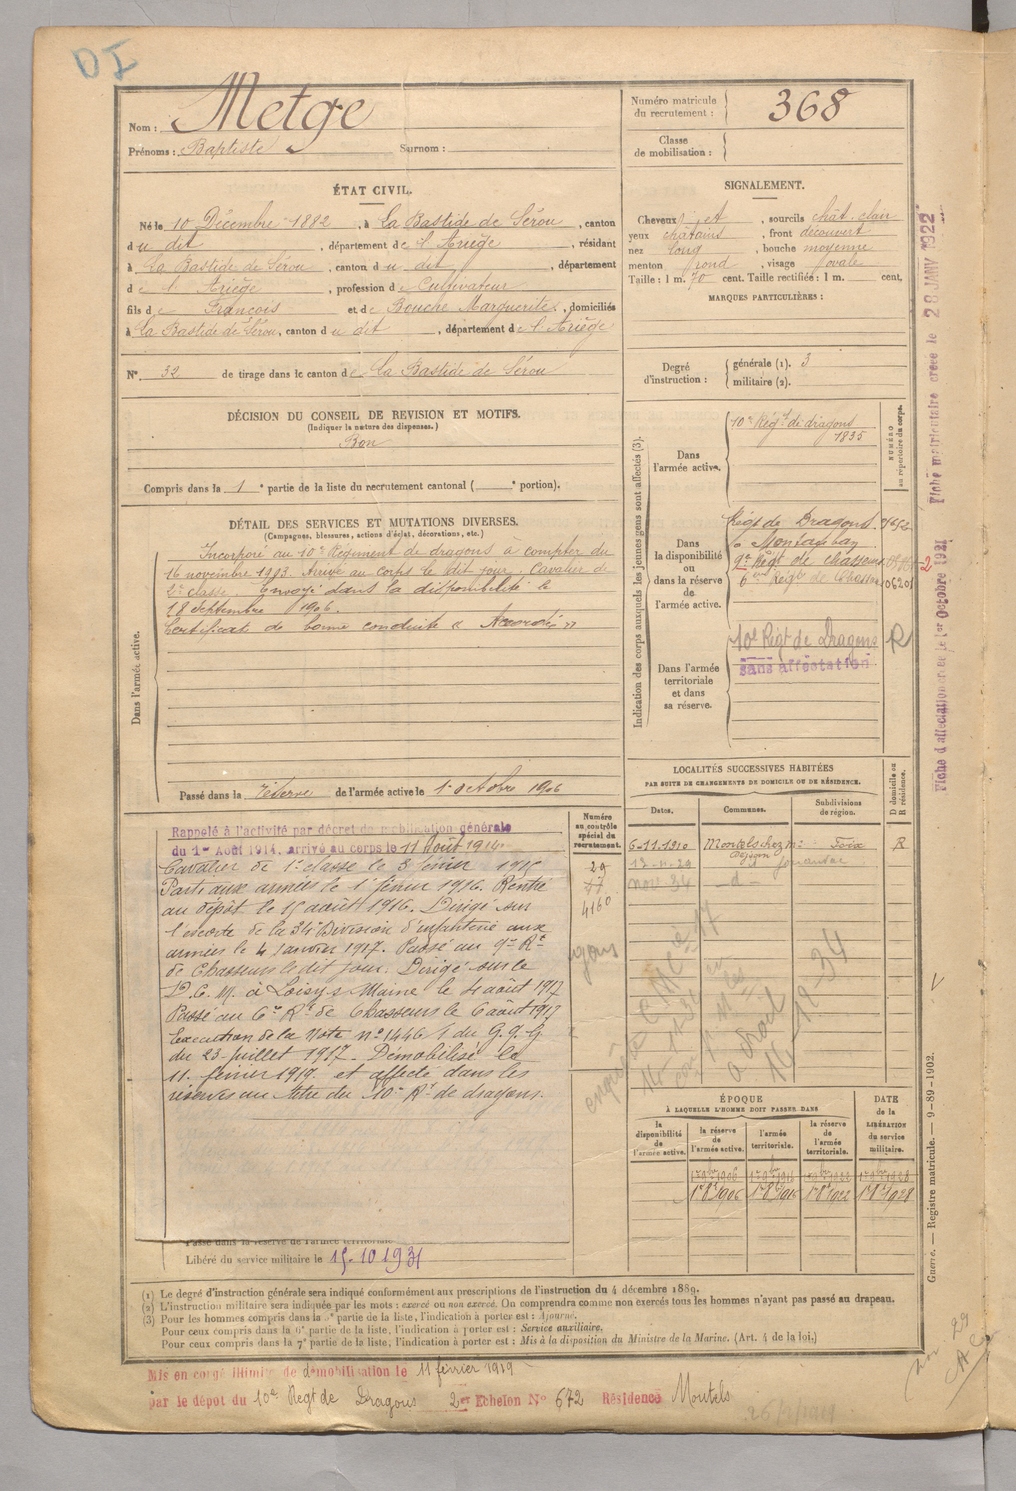 DI
Nom : Metge
Prénoms : Baptiste Surnom :
Numéro matricule du recrutement : 368
Classe de mobilisation :
ÉTAT CIVIL.
Né le 10 Décembre 1882, à La Bastide de Sérou, canton
du dit, département de l'Ariège, résidant
à La Bastide de Sérou, canton du dit, département
de l'Ariège, profession de Cultivateur
fils de François et de Bouche Marguerite, domiciliés
à La Bastide de Sérou, canton du dit, département de l'Ariège
N° 32 de tirage dans le canton de La Bastide de Sérou
SIGNALEMENT.
Cheveux et, sourcils chât. clair
yeux châtains, front découvert
nez long, bouche moyenne
menton rond, visage ovale
Taille : 1 m. 70 cent. Taille rectifiée : 1 m. cent.
MARQUES PARTICULIÈRES :
Degré d'instruction : générale (1). 3
militaire (2).
DÉCISION DU CONSEIL DE REVISION ET MOTIFS.
(Indiquer la nature des dispenses.)
Bon
Compris dans la 1e partie de la liste du recrutement cantonal ( e portion).
DÉTAIL DES SERVICES ET MUTATIONS DIVERSES.
(Campagnes, blessures, actions d'éclat, décorations, etc.)
Dans l'armée active.
Incorporé au 10e Régiment de dragons à compter du
16 novembre 1903. Arrivé au corps le dit jour. Cavalier de
2e classe. Envoyé dans la disponibilité le
18 septembre 1906.
Certificat de bonne conduite « Accordé »
Passé dans la réserve de l'armée active le 1 octobre 1906
Rappelé à l'activité par décret de mobilisation générale
du 1er Août 1914, arrivé au corps le 11 août 1914.
Cavalier de 1e classe le 3 février 1915
Parti aux armées le 1e février 1916. Rentré
au dépôt le 15 août 1916. Dirigé sur
l'escorte de la 34e Division d'infanterie aux
armées le 4 janvier 1917. Passé au 9e Rt
de Chasseurs le dit jour. Dirigé sur le
D.C.M. à Loisy s Marne le 4 août 1917
Passé au 6e Rt de Chasseurs le 6 août 1917
Execution de la Note n° 1446 1 du G.Q.G
du 23 juillet 1917. Démobilisé le
11 février 1919 et affecté dans les
réserves au titre du 10e Rt de dragons.
Passé dans la réserve de l'armée territoriale
Libéré du service militaire le 15.10.1931
Indication des corps auxquels les jeunes gens sont affectés (3).
NUMÉRO au répertoire du corps.
Dans l'armée active.
10e Régt de dragons
1835
Dans la disponibilité ou dans la réserve de l'armée active.
Régt de Dragons
à Montauban
9e Régt de chasseurs
6eme Régt de Chasse 06201
Dans l'armée territoriale et dans sa réserve.
10e Régt de Dragons R
sans affectation
LOCALITÉS SUCCESSIVES HABITÉES
PAR SUITE DE CHANGEMENTS DE DOMICILE OU DE RÉSIDENCE.
D domicile ou R résidence.
Numéro au contrôle spécial du recrutement.
29
4160
Dates. Communes. Subdivisions de région.
6-11-1910 Montels Foix R
nov 34 — d —
enquête
ÉPOQUE
À LAQUELLE L'HOMME DOIT PASSER DANS
la disponibilité de l'armée active.
la réserve de l'armée active.
l'armée territoriale.
la réserve de l'armée territoriale.
DATE de la LIBÉRATION du service militaire.
1r 9bre 1906 1r 9bre 1916 1r 9bre 1922 1r 9bre 1928
1r 8bre 1906 1r 8bre 1916 1r 8bre 1922 1r 8bre 1928
(1) Le degré d'instruction générale sera indiqué conformément aux prescriptions de l'instruction du 4 décembre 1889.
(2) L'instruction militaire sera indiquée par les mots : exercé ou non exercé. On comprendra comme non exercés tous les hommes n'ayant pas passé au drapeau.
(3) Pour les hommes compris dans la 5e partie de la liste, l'indication à porter est : Ajourné.
Pour ceux compris dans la 6e partie de la liste, l'indication à porter est : Service auxiliaire.
Pour ceux compris dans la 7e partie de la liste, l'indication à porter est : Mis à la disposition du Ministre de la Marine. (Art. 4 de la loi.)
Mis en congé illimité de démobilisation le 11 février 1919
par le dépot du 10e Régt de Dragons 2e Echelon N° 672 Résidence Montels
Fiche d'affectation créée le 1er Octobre 1921
Fiche matriculaire créée le 28 JANV 1922
Guerre. — Registre matricule. — 9-89-1902.